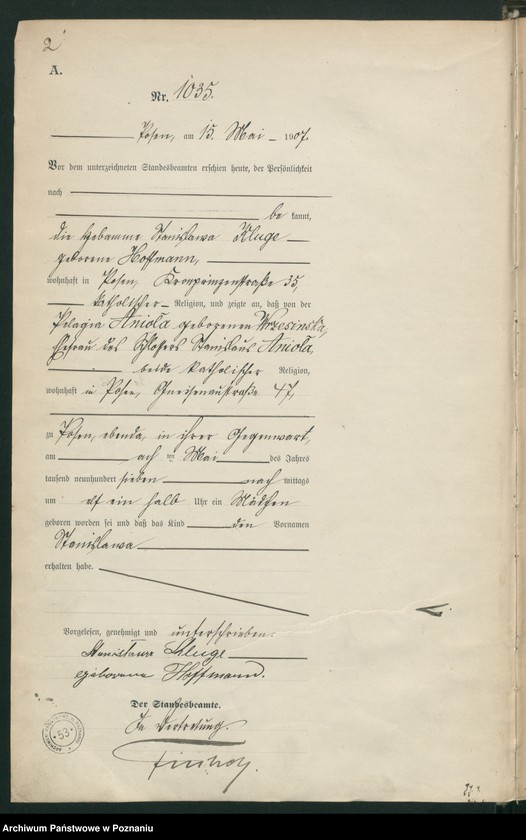 2
A.
Nr. 1035.
Posen, am 15. Mai 1907.
Vor dem unterzeichneten Standesbeamten erschien heute, der Persönlichkeit
nach
be kannt,
die Hebamme Stanislawa Kluge
geborene Hoffmann,
wohnhaft in Posen, Kronprinzenstraße 35,
katholischer Religion, und zeigte an, daß von der
Pelagia Aniola geborenen Wrzesinska,
Ehefrau des Schlossers Stanislaus Aniola,
beide katholischer Religion,
wohnhaft in Posen, Gneisenaustraße 47,
zu Posen, ebenda, in ihrer Gegenwart,
am acht ten Mai des Jahres
tausend neunhundert sieben nach mittags
um elf ein halb Uhr ein Mädchen
geboren worden sei und daß das Kind den Vornamen
Stanislawa
erhalten habe.
Vorgelesen, genehmigt und unterschrieben.
Stanislawa Kluge
geborene Hoffmann.
Der Standesbeamte.
In Vertretung.
53
Archiwum Państwowe w Poznaniu